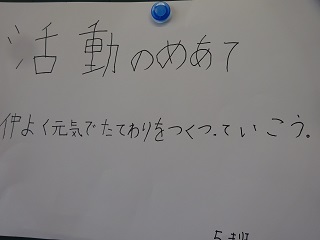 活動のめあて
仲よく元気でたてわりをつくっていこう。
5班